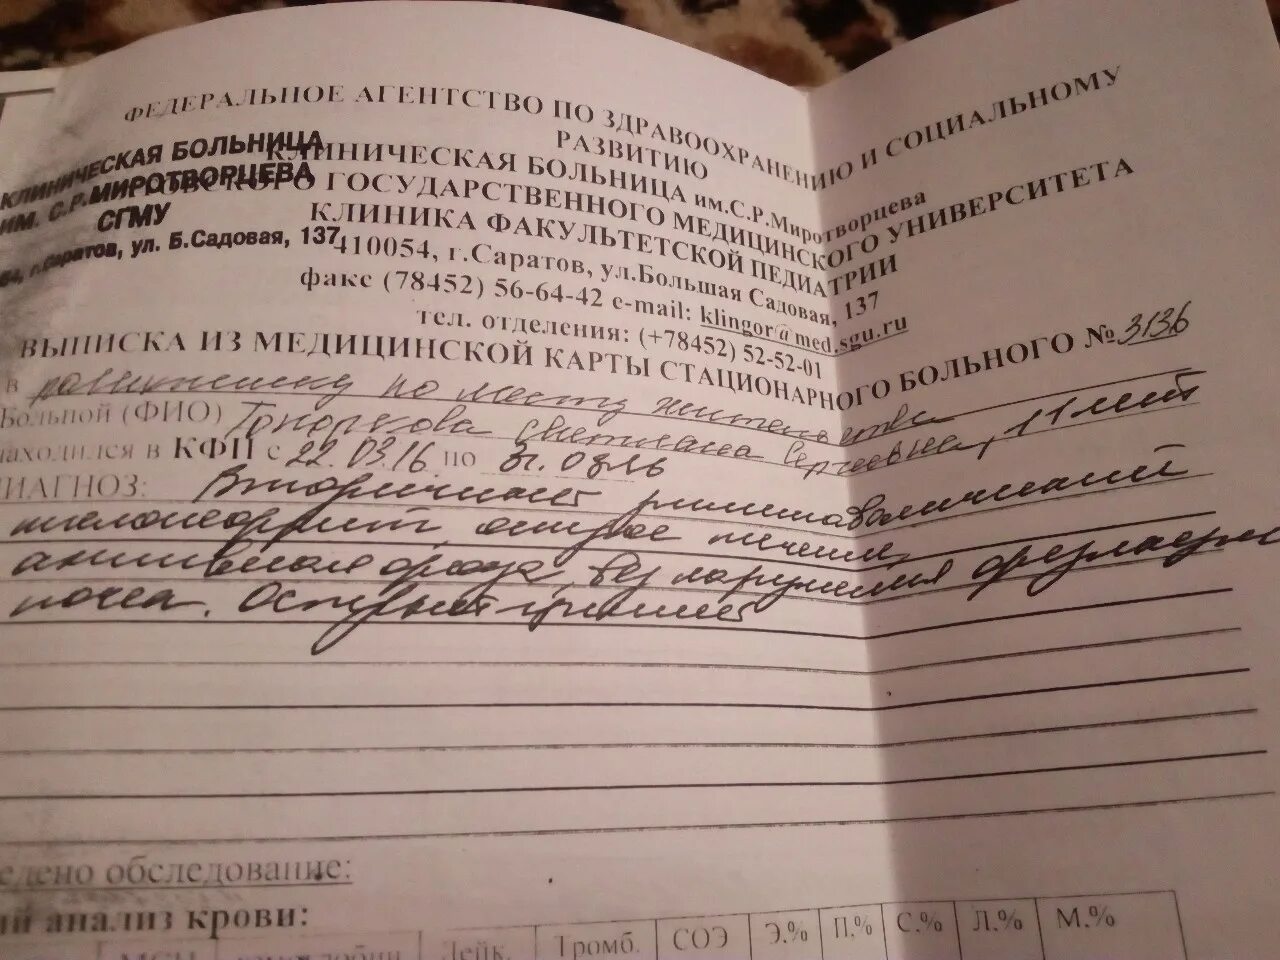 ФЕДЕРАЛЬНОЕ АГЕНТСТВО ПО ЗДРАВООХРАНЕНИЮ И СОЦИАЛЬНОМУ
РАЗВИТИЮ
КЛИНИЧЕСКАЯ БОЛЬНИЦА
ИМ. С.Р.МИРОТВОРЦЕВА
СГМУ
г.Саратов, ул. Б.Садовая, 137
КЛИНИЧЕСКАЯ БОЛЬНИЦА им.С.Р.Миротворцева
ГОСУДАРСТВЕННОГО МЕДИЦИНСКОГО УНИВЕРСИТЕТА
КЛИНИКА ФАКУЛЬТЕТСКОЙ ПЕДИАТРИИ
410054, г.Саратов, ул.Большая Садовая, 137
факс (78452) 56-64-42 e-mail: klingor@med.sgu.ru
тел. отделения: (+78452) 52-52-01
ВЫПИСКА ИЗ МЕДИЦИНСКОЙ КАРТЫ СТАЦИОНАРНОГО БОЛЬНОГО № 3136
в поликлинику по месту жительства
Больной (ФИО) Светлана Сергеевна, 11 лет
находился в КФП с 22.03.16 по 31.03.16
ДИАГНОЗ: Вторичный дисметаболический
пиелонефрит, острое течение,
активная фаза, без нарушения функции
почек. Острый
едено обследование:
ий анализ крови:
Лейк. Тромб. СОЭ Э.% П.% С.% Л.% М.%